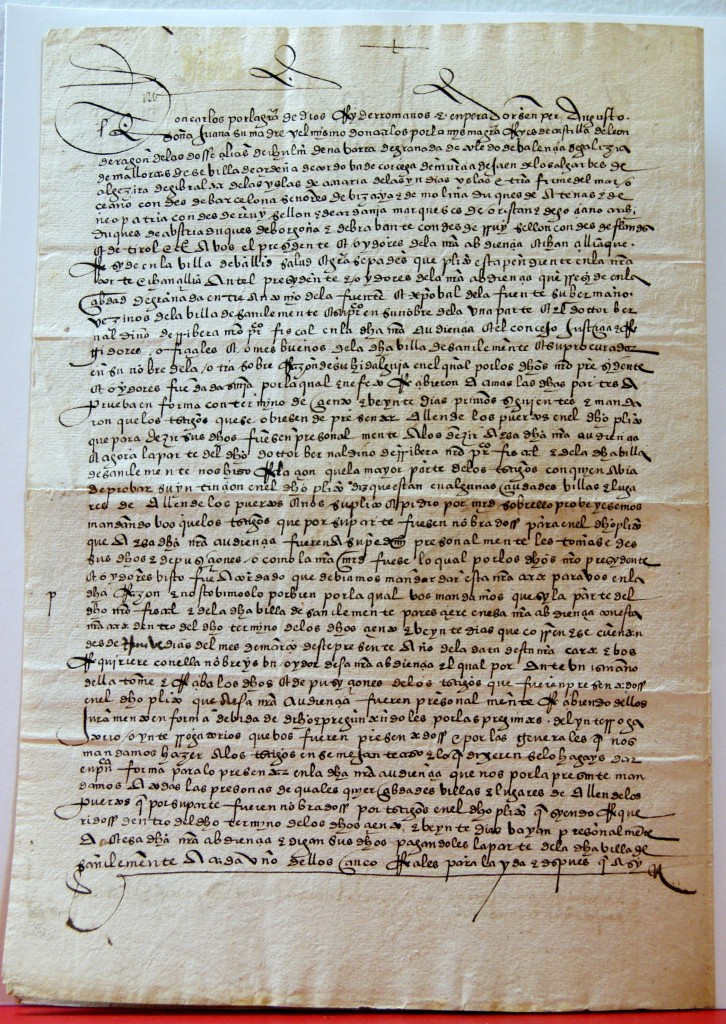 Don carlos por la gra de dios Rey de rromanos e enperador senper Augusto
doña Juana su madre y el mysmo don carlos por la mysma gra Reyes de castilla de leon
de aragon de las dos seçilias de iherusalem de navarra de granada de toledo de valençia de galizia
de mallorcas de sevilla de çerdeña de cordova de corçega de murçia de jaen de los algarbes de
algezira de gibraltar de las yslas de canaria de las yndias yslas e tierra firme del mar o
çeano condes de barcelona señores de bizcaya e de molina duques de Atenas e de
neopatria condes de rruysellon e de çerdania marqueses de oristan e de goçiano archi
duques de abstria duques de borgoña e de brabante condes de flandes
e de tirol etc A vos el presydente e oydores dela nra abdiençia e chançilleria que
Reside en la villa de vallid salud e gra sepades que plito esta pendiente en la nra
corte e chançilleria Ante el presydente e oydores dela nra abdiençia que Resyde en la
çibdad de granada entre Antonio dela fuente e xpobal dela fuente su hermano
vezinos dela villa de san clemente e su pror en su nonbre dela una parte e el dottor ber
naldino de rribera nro pror fiscal en la dha nra Audiençia e el conçejo Justiçia e Re
gidores ofiçiales e omes buenos dela dha villa de san clemente e su procurador
en su nonbre dela otra sobre Razon de su hidalguia en el qual por los dhos nro presydente
e oydores fue dada sentençia por la qual en efeto Resçibieron A amas las dhas partes A
prueva en forma con termino de çiento e veynte dias primeros siguientes e manda
ron que los testigos que se obiesen de presentar Allende los puertos en el dho plito
que para dezir sus dhos fuesen personalmente A los dezir A esa dha nra audiençia
e agora la parte del dho dottor bernaldino de rribera nro pror fiscal e dela dha villa
de san clemente nos hizo Relaçion que la mayor parte de los testigos con quien avia
de provar su yntinçion en el dho plito diz que estan en algunas çibdades villas e luga
res de Allende los puertos e nos suplico e pidio por mrd sobre ello proveyesemos
mandando vos que los testigos que por su parte fuesen nonbrados para en el dho plito
que A esa dha nra audiençia fueren A su pedimiento personalmente les tomasedes
sus dhos e depusyçiones o como la nra mrd fuese lo qual por los dhos nro presydente
e oydores visto fue Acordado que debiamos mandar dar esta nra carta para vos en la
dha Razon e nos tovimoslo por bien por la qual vos mandamos que sy la parte del
dho nro fiscal e dela dha villa de san clemente paresçiere en esa nra abdiençia con esta
nra carta dentro del dho termino de los dhos çiento e veynte dias que corren e se cuentan
desde nueve dias del mes de março deste presente Año dela data desta nra carta e vos
Requiriere con ella nonbreys un oydor desa nra abdiençia el qual por Ante un escrivano
della tome e Resçiba los dhos e depusyçiones de los testigos que fueren presentados
en el dho plito que A esa nra Audiençia fueren personalmente Resçibiendo dellos
Juramento en forma debida de derecho e preguntandoles por las preguntas del ynterroga
torio o ynterrogatorios que vos fueren presentados e por las generales que nos
mandamos hazer A los testigos en semejante caso e lo que dixeren se lo hagays dar
en publica forma para lo presentar en la dha nra audiençia que nos por la presente man
damos A todas las personas de qualesquiera çibdades villas e lugares de Allende los
puertos que por su parte fueren nonbrados por testigos en el dho plito que syendo Reque
ridos dentro del dho termino de los dhos çiento e veynte dias vayan personalmente
A esa dha nra abdiençia e digan sus dhos pagandoles la parte dela dha villa de
san clemente A cada uno dellos çinco Reales para la yda e despues que A sy